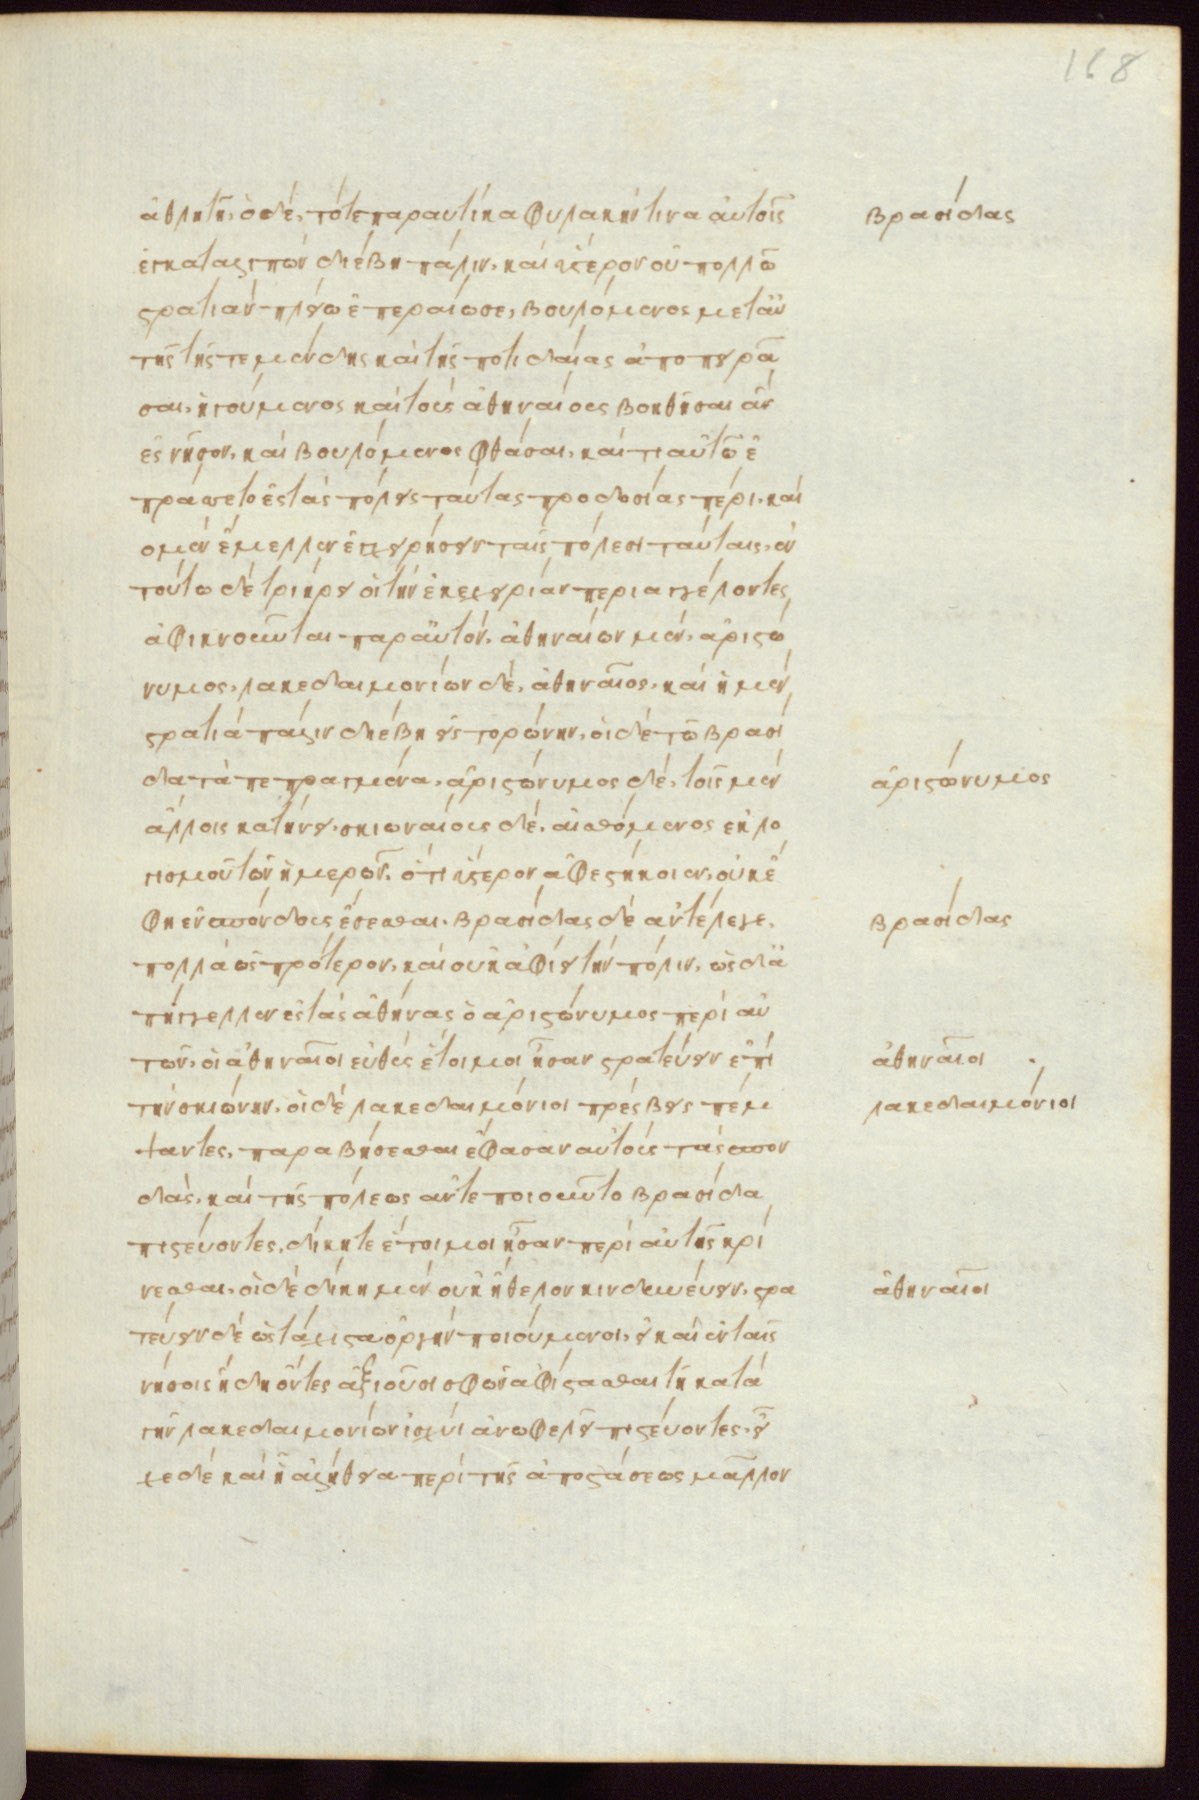 168
ἀθλητῆ, ὁ δὲ, τότε παραυτίκα φυλακήν τινα αὐτοῖς
ἐγκαταλιπὼν διέβη πάλιν, καὶ ὕστερον οὐ πολλῶ
στρατιὰν πλείω ἐπεραίωσε, βουλόμενος μετ' αὐ
τῆς τῆς τε μένδης καὶ τῆς ποτιδαίας ἀποπειρᾶ
σαι, ἡγούμενος καὶ τοὺς ἀθηναίους βοηθῆσαι ἂν
ἐς νῆσον, καὶ βουλόμενος φθάσαι, καί τι αὐτῶ ἐ
πράσσετο ἐς τὰς πόλεις ταύτας προδοσίας πέρι, καὶ
ὁ μὲν ἔμελλεν ἐγχειρήσειν ταῖς πόλεσι ταύταις, ἐν
τούτω δὲ τριήρει οἱ τὴν ἐκεχειρίαν περιαγγέλοντες
ἀφικνοῦνται παρ' αὐτὸν, ἀθηναίων μὲν, ἀριστώ
νυμος, λακεδαιμονίων δὲ, ἀθηναῖος, καὶ ἡ μὲν
στρατιὰ πάλιν διέβη εἰς τορώνην, οἱ δὲ τῶ βρασί
δα τὰ πεπραγμένα, ἀριστώνυμος δὲ, τοῖς μὲν
ἄλλοις κατήνει, σκιωναίους δὲ, αἰσθόμενος ἐκ λο
γισμοῦ τῶν ἡμερῶν, ὅτι ὕστερον ἀφεστήκοιεν, οὐκ ἔ
φη ἐνσπόνδους ἔσεσθαι, βρασίδας δὲ ἀντέλεγε,
πολλὰ ὡς πρότερον, καὶ οὐκ ἀφίει τὴν πόλιν, ὡς δ' ἀ
πήγγελλεν ἐς τὰς ἀθήνας ὁ ἀριστώνυμος περὶ αὐ
τῶν, οἱ ἀθηναῖοι εὐθὺς ἑτοῖμοι ἦσαν στρατεύειν ἐπὶ
τὴν σκιώνην, οἱ δὲ λακεδαιμόνιοι πρέσβεις πέμ
ψαντες, παραβήσεσθαι ἔφασαν αὐτοὺς τὰς σπον
δὰς, καὶ τῆς πόλεως ἀντεποιοῦντο βρασίδα
πιστεύοντες, δίκη τε ἕτοιμοι ἦσαν περὶ αὐτῆς κρί
νεσθαι, οἱ δὲ δίκη μὲν οὐκ ἤθελον κινδυνεύειν, στρα
τεύειν δὲ ὡς τάχιστα ὀργὴν ποιούμενοι, εἰ καὶ ἐν ταῖς
νήσοις ἤδη ὄντες ἀξιοῦσι σφῶν ἀφίστασθαι τῆ κατὰ
γῆν λακεδαιμονίων ἰσχύι ἀνωφελεῖ πιστεύοντες, εἶ
χε δὲ καὶ ἡ ἀλήθεια περὶ τῆς ἀποστάσεως μᾶλλον
βρασίδας
ἀριστώνυμος
βρασίδας
ἀθηναῖοι
λακεδαιμόνιοι
ἀθηναῖοι